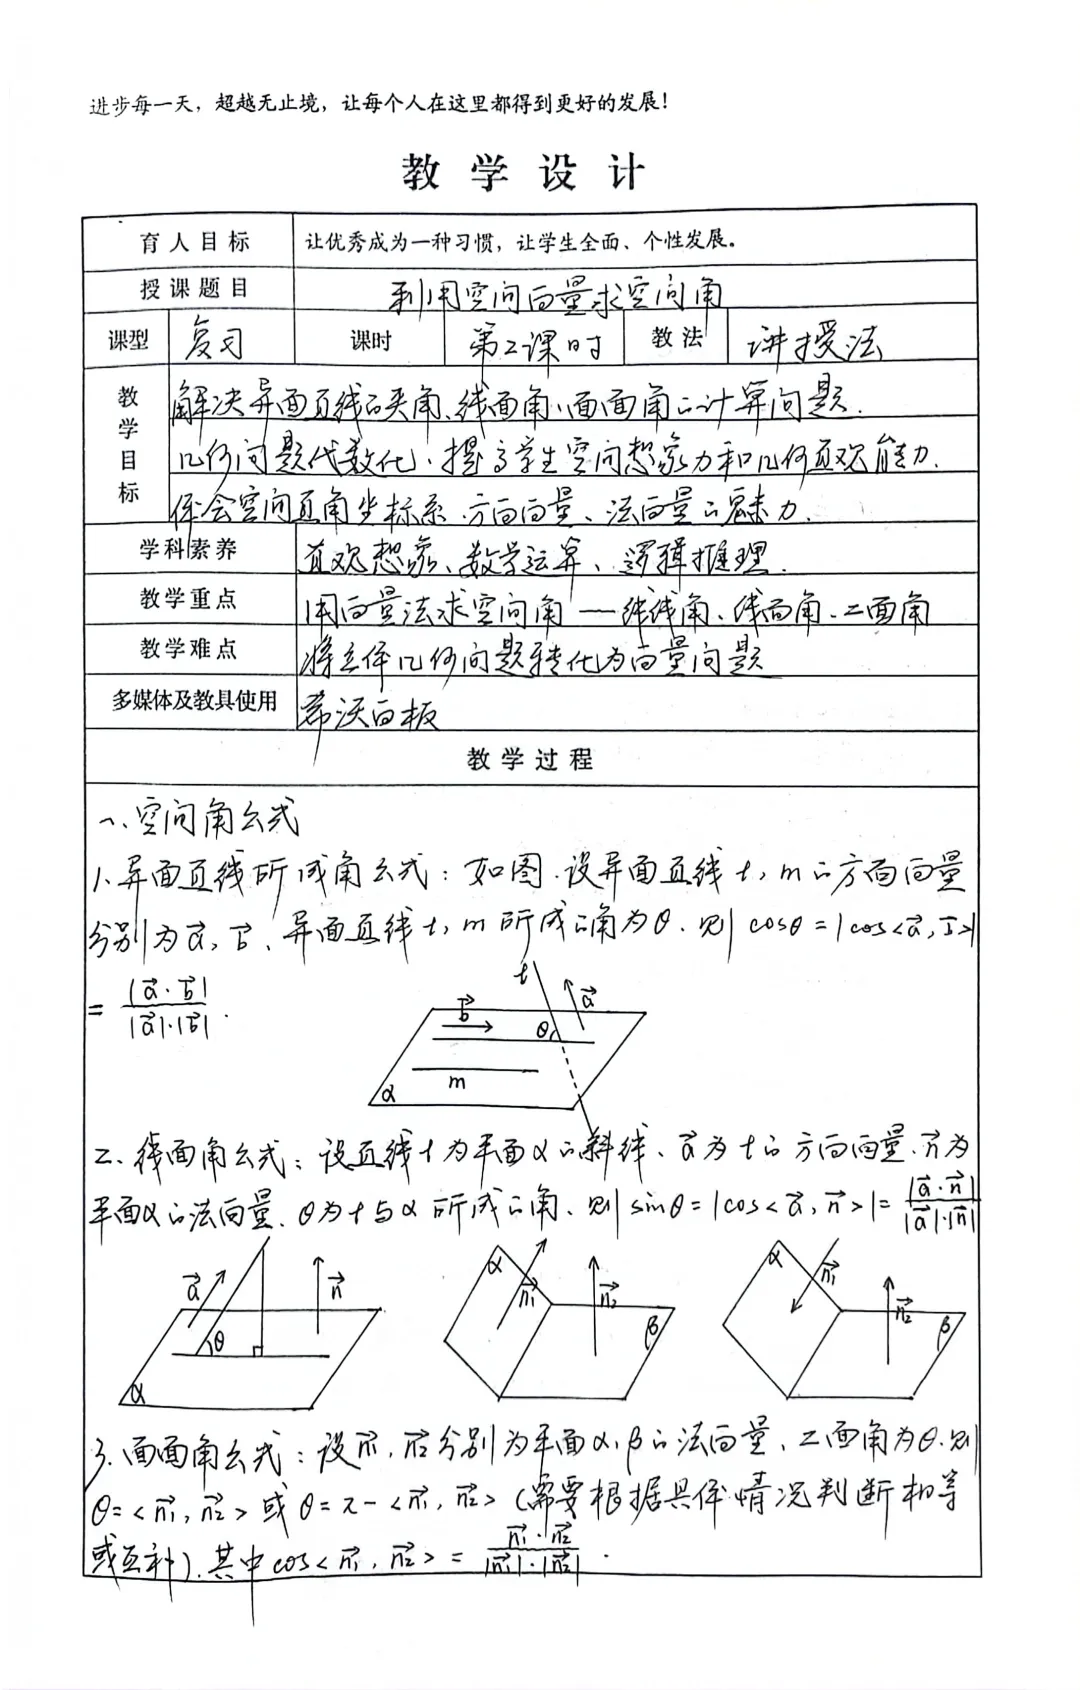 进步每一天，超越无止境，让每个人在这里都得到更好的发展！
教 学 设 计
育人目标 让优秀成为一种习惯，让学生全面、个性发展。
授课题目 利用空间向量求空间角
课型 复习 课时 第2课时 教法 讲授法
教学目标 解决异面直线的夹角、线面角、面面角的计算问题.
几何问题代数化、提高学生空间想象力和几何直观能力.
体会空间直角坐标系、方向向量、法向量的魅力.
学科素养 直观想象、数学运算、逻辑推理.
教学重点 用向量法求空间角——线线角、线面角、二面角
教学难点 将立体几何问题转化为向量问题
多媒体及教具使用 希沃白板
教学过程
一、空间角公式
1、异面直线所成角公式：如图.设异面直线t, m的方向向量
分别为a⃗, b⃗, 异面直线t, m所成的角为θ.则 cosθ = |cos<a⃗, b⃗>|
= |a⃗·b⃗| / |a⃗|·|b⃗| .
t a⃗
b⃗ θ
m
α
2、线面角公式：设直线t为平面α的斜线、a⃗为t的方向向量.n⃗为
平面α的法向量、θ为t与α所成的角、则 sinθ = |cos<a⃗, n⃗>| = |a⃗·n⃗| / |a⃗|·|n⃗|
a⃗ n⃗ θ α
α n₁⃗ n₂⃗ β
α n₁⃗ n₂⃗ β
3、面面角公式：设n₁⃗, n₂⃗分别为平面α, β的法向量、二面角为θ.则
θ=<n₁⃗, n₂⃗> 或 θ=π-<n₁⃗, n₂⃗> (需要根据具体情况判断相等
或互补).其中cos<n₁⃗, n₂⃗> = n₁⃗·n₂⃗ / |n₁⃗|·|n₂⃗| .